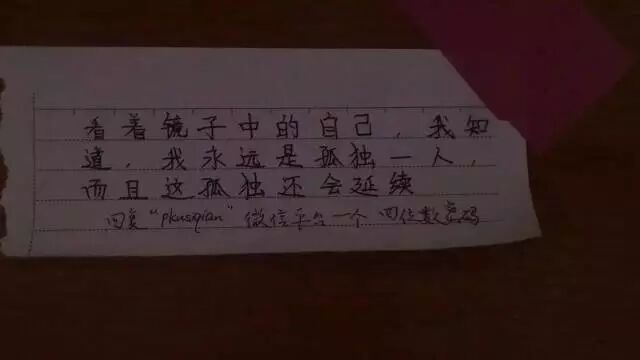 看着镜子中的自己，我知
道，我永远是孤独一人，
而且这孤独还会延续
回复“pkusqian”微信平台一个 四位数密码